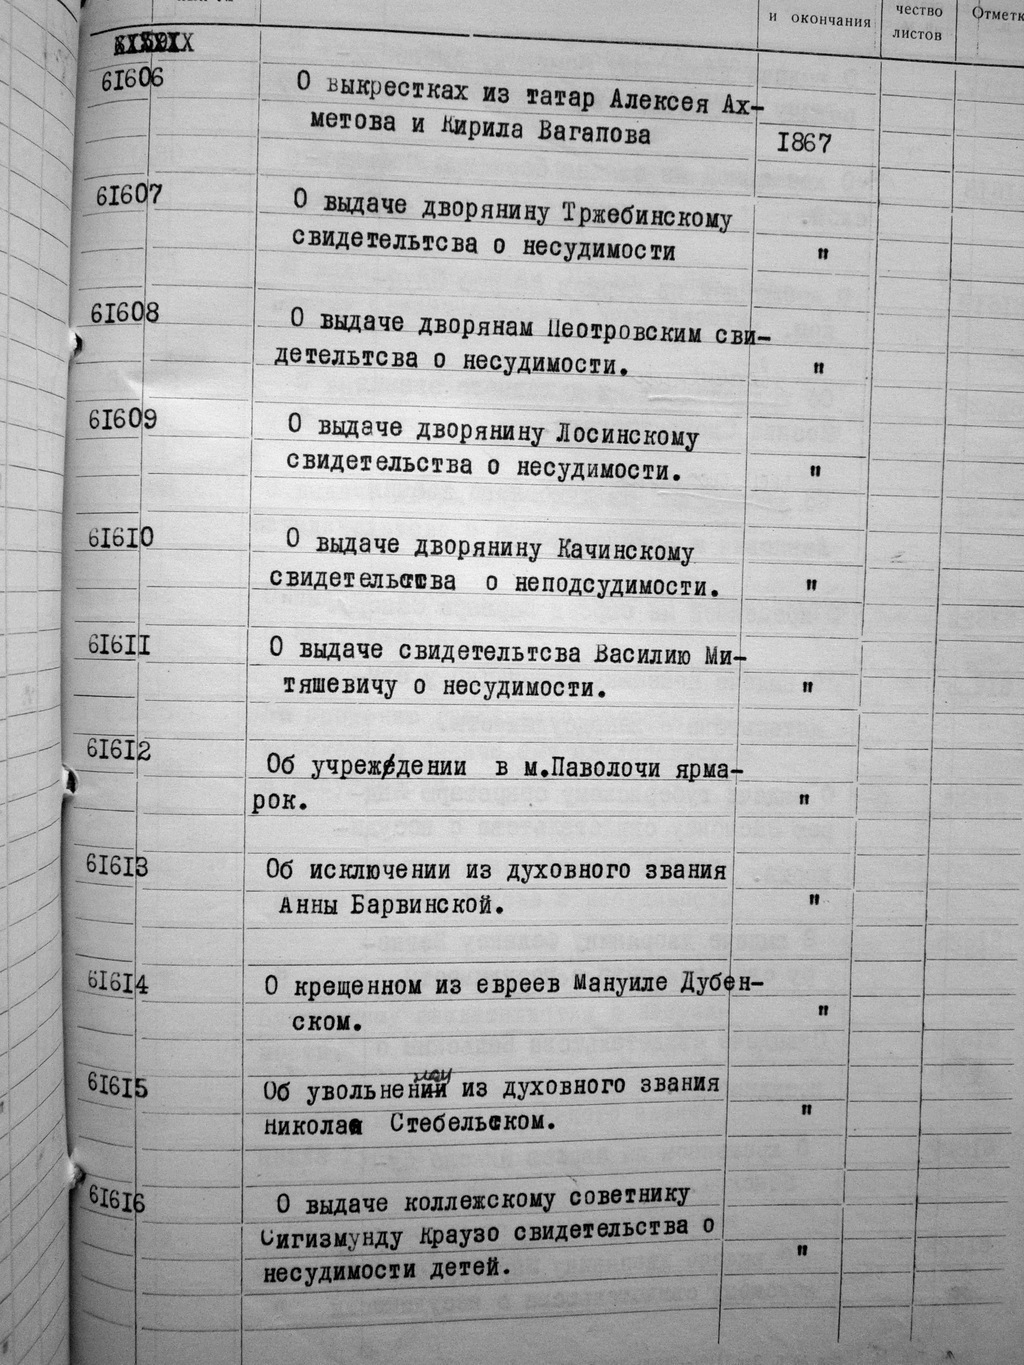 и окончания
чество
листов
Отметк
61606
О выкрестках из татар Алексея Ах-
метова и Кирила Вагапова
1867
61607
О выдаче дворянину Тржебинскому
свидетельтсва о несудимости
"
61608
О выдаче дворянам Пеотровским сви-
детельтсва о несудимости.
"
61609
О выдаче дворянину Лосинскому
свидетельства о несудимости.
"
61610
О выдаче дворянину Качинскому
свидетельства о неподсудимости.
"
61611
О выдаче свидетельтсва Василию Ми-
тяшевичу о несудимости.
"
61612
Об учреждении в м.Паволочи ярма-
рок.
"
61613
Об исключении из духовного звания
Анны Барвинской.
"
61614
О крещенном из евреев Мануиле Дубен-
ском.
"
61615
Об увольнении из духовного звания
Николая Стебельском.
"
61616
О выдаче коллежскому советнику
Сигизмунду Краузо свидетельства о
несудимости детей.
"